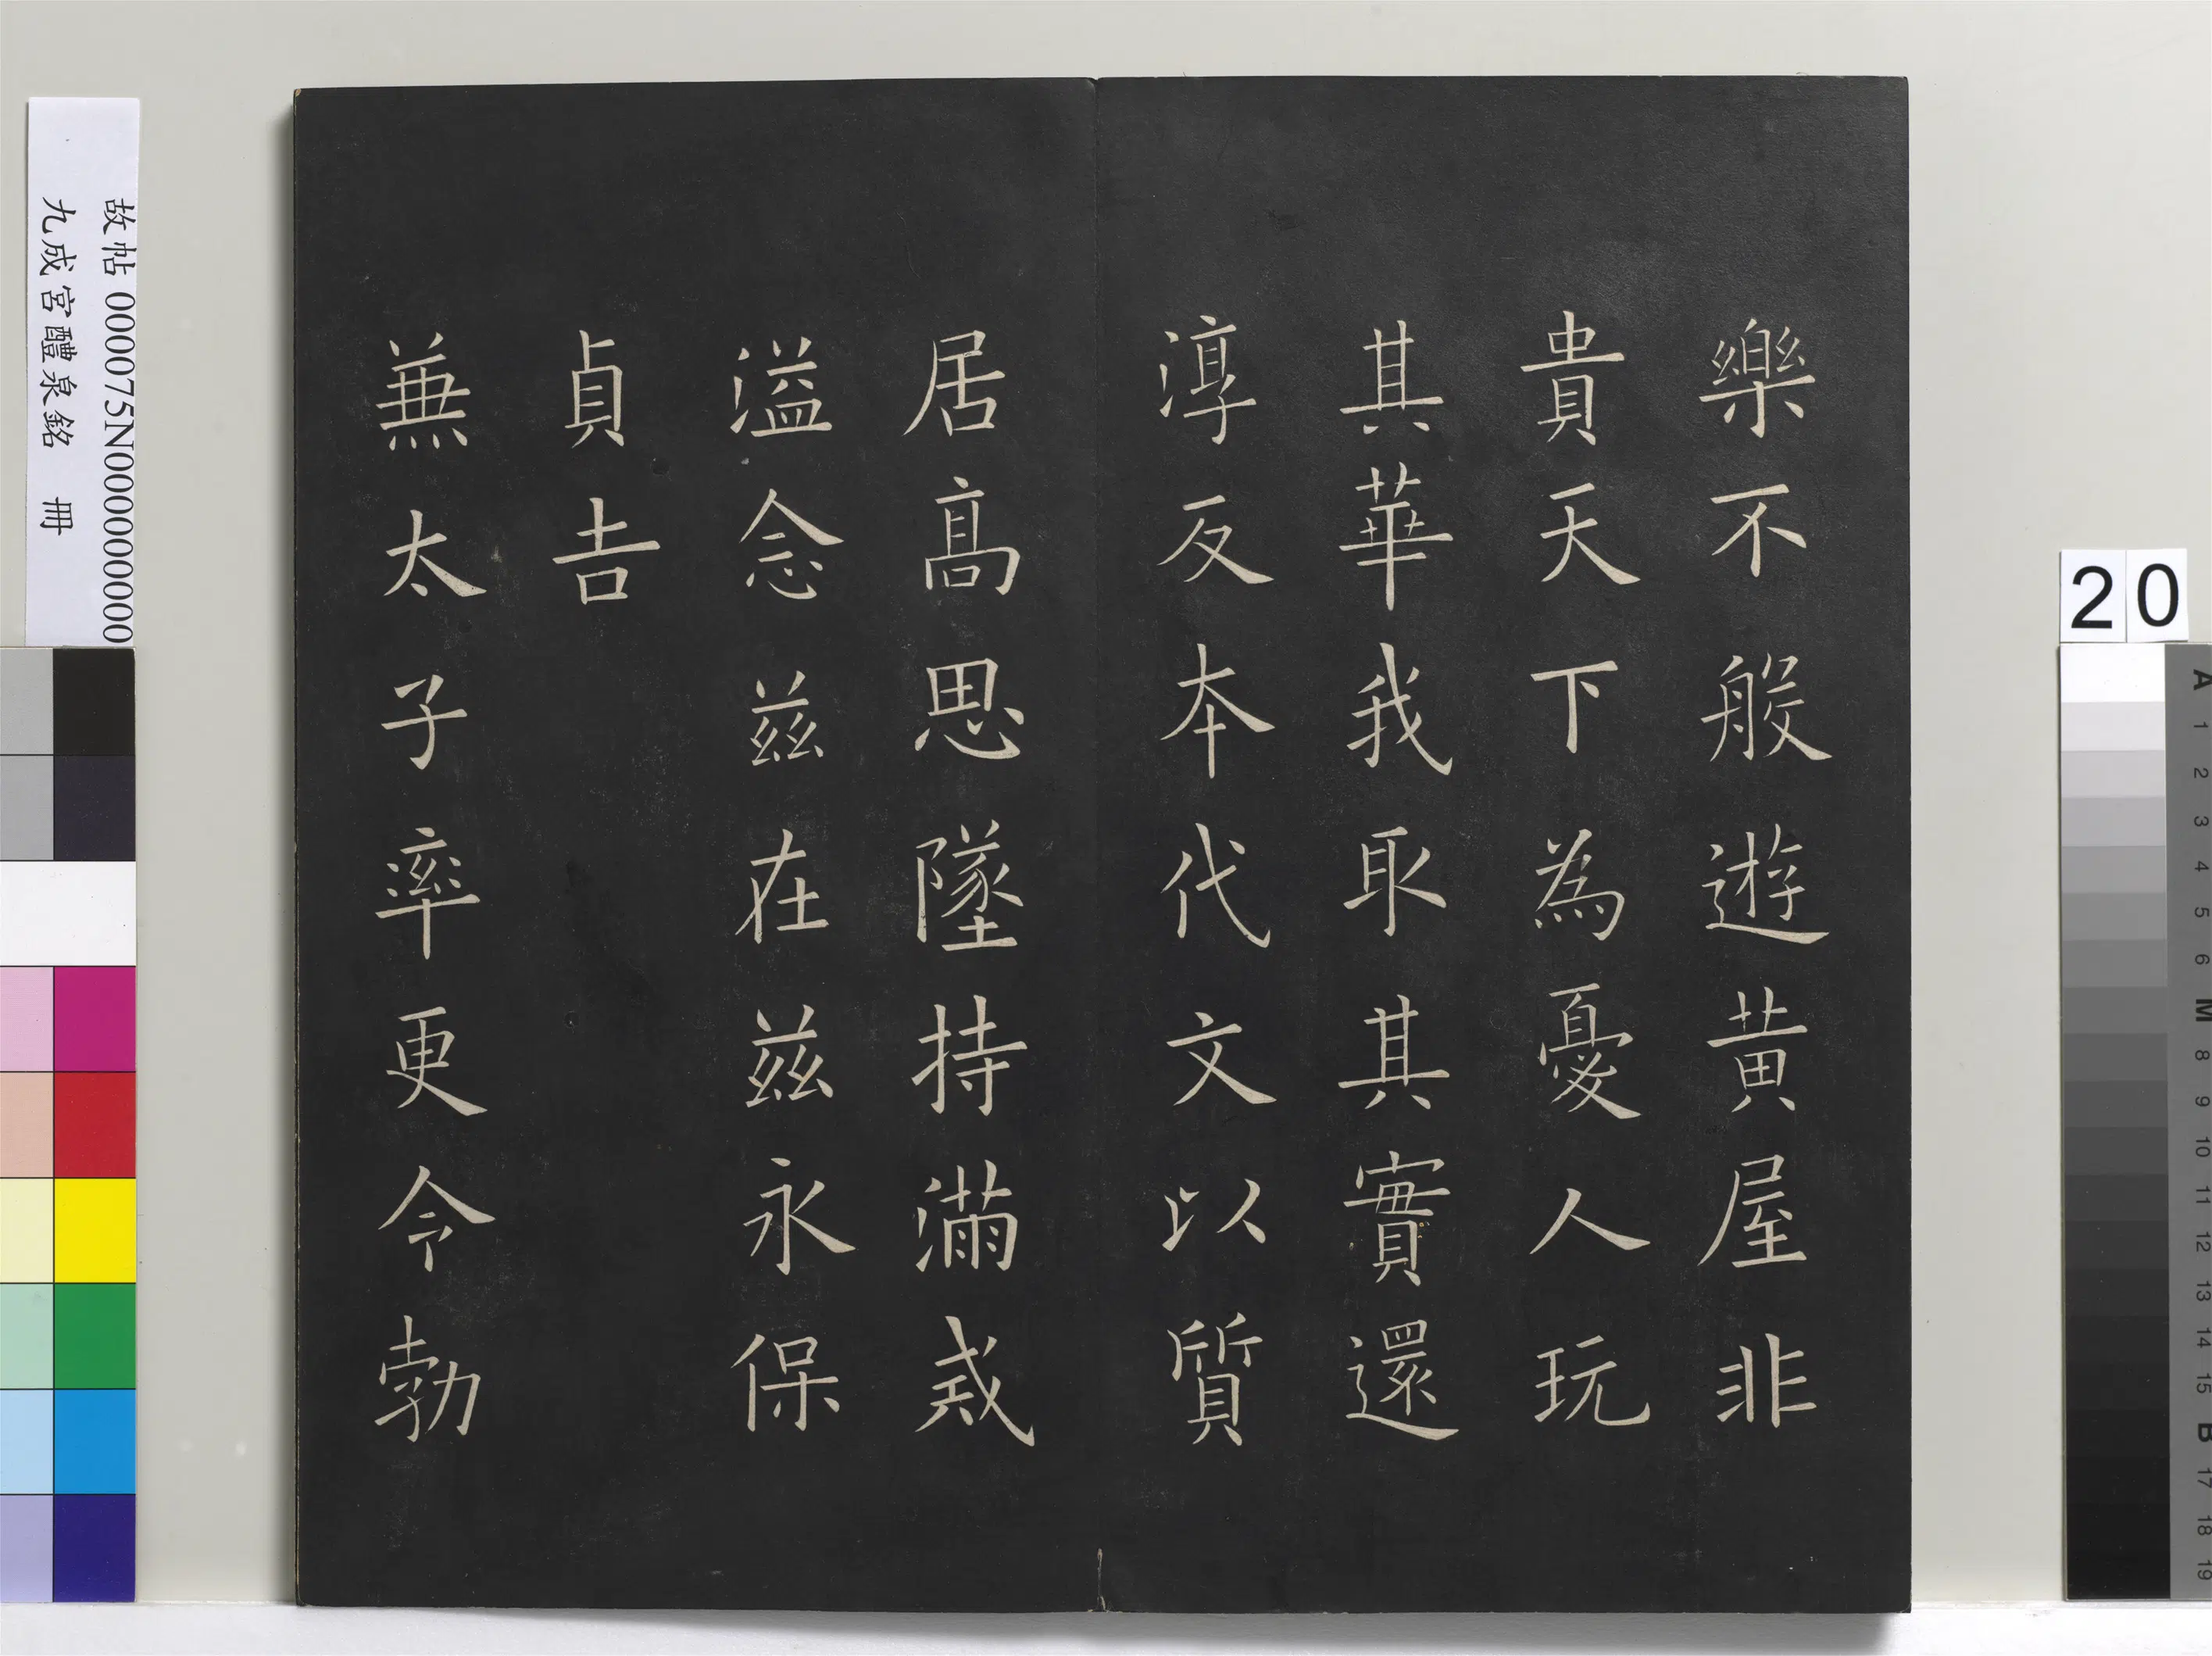 樂不般遊黄屋非
貴天下為憂人玩
其華我取其實還
淳反本代文以質
居髙思墜持滿戒
溢念兹在兹永保
貞吉
兼太子率更令勃
故帖 000075N000000000
九成宮醴泉銘 冊
20
A
1
2
3
4
5
6
M
8
9
10
11
12
13
14
15
B
17
18
19